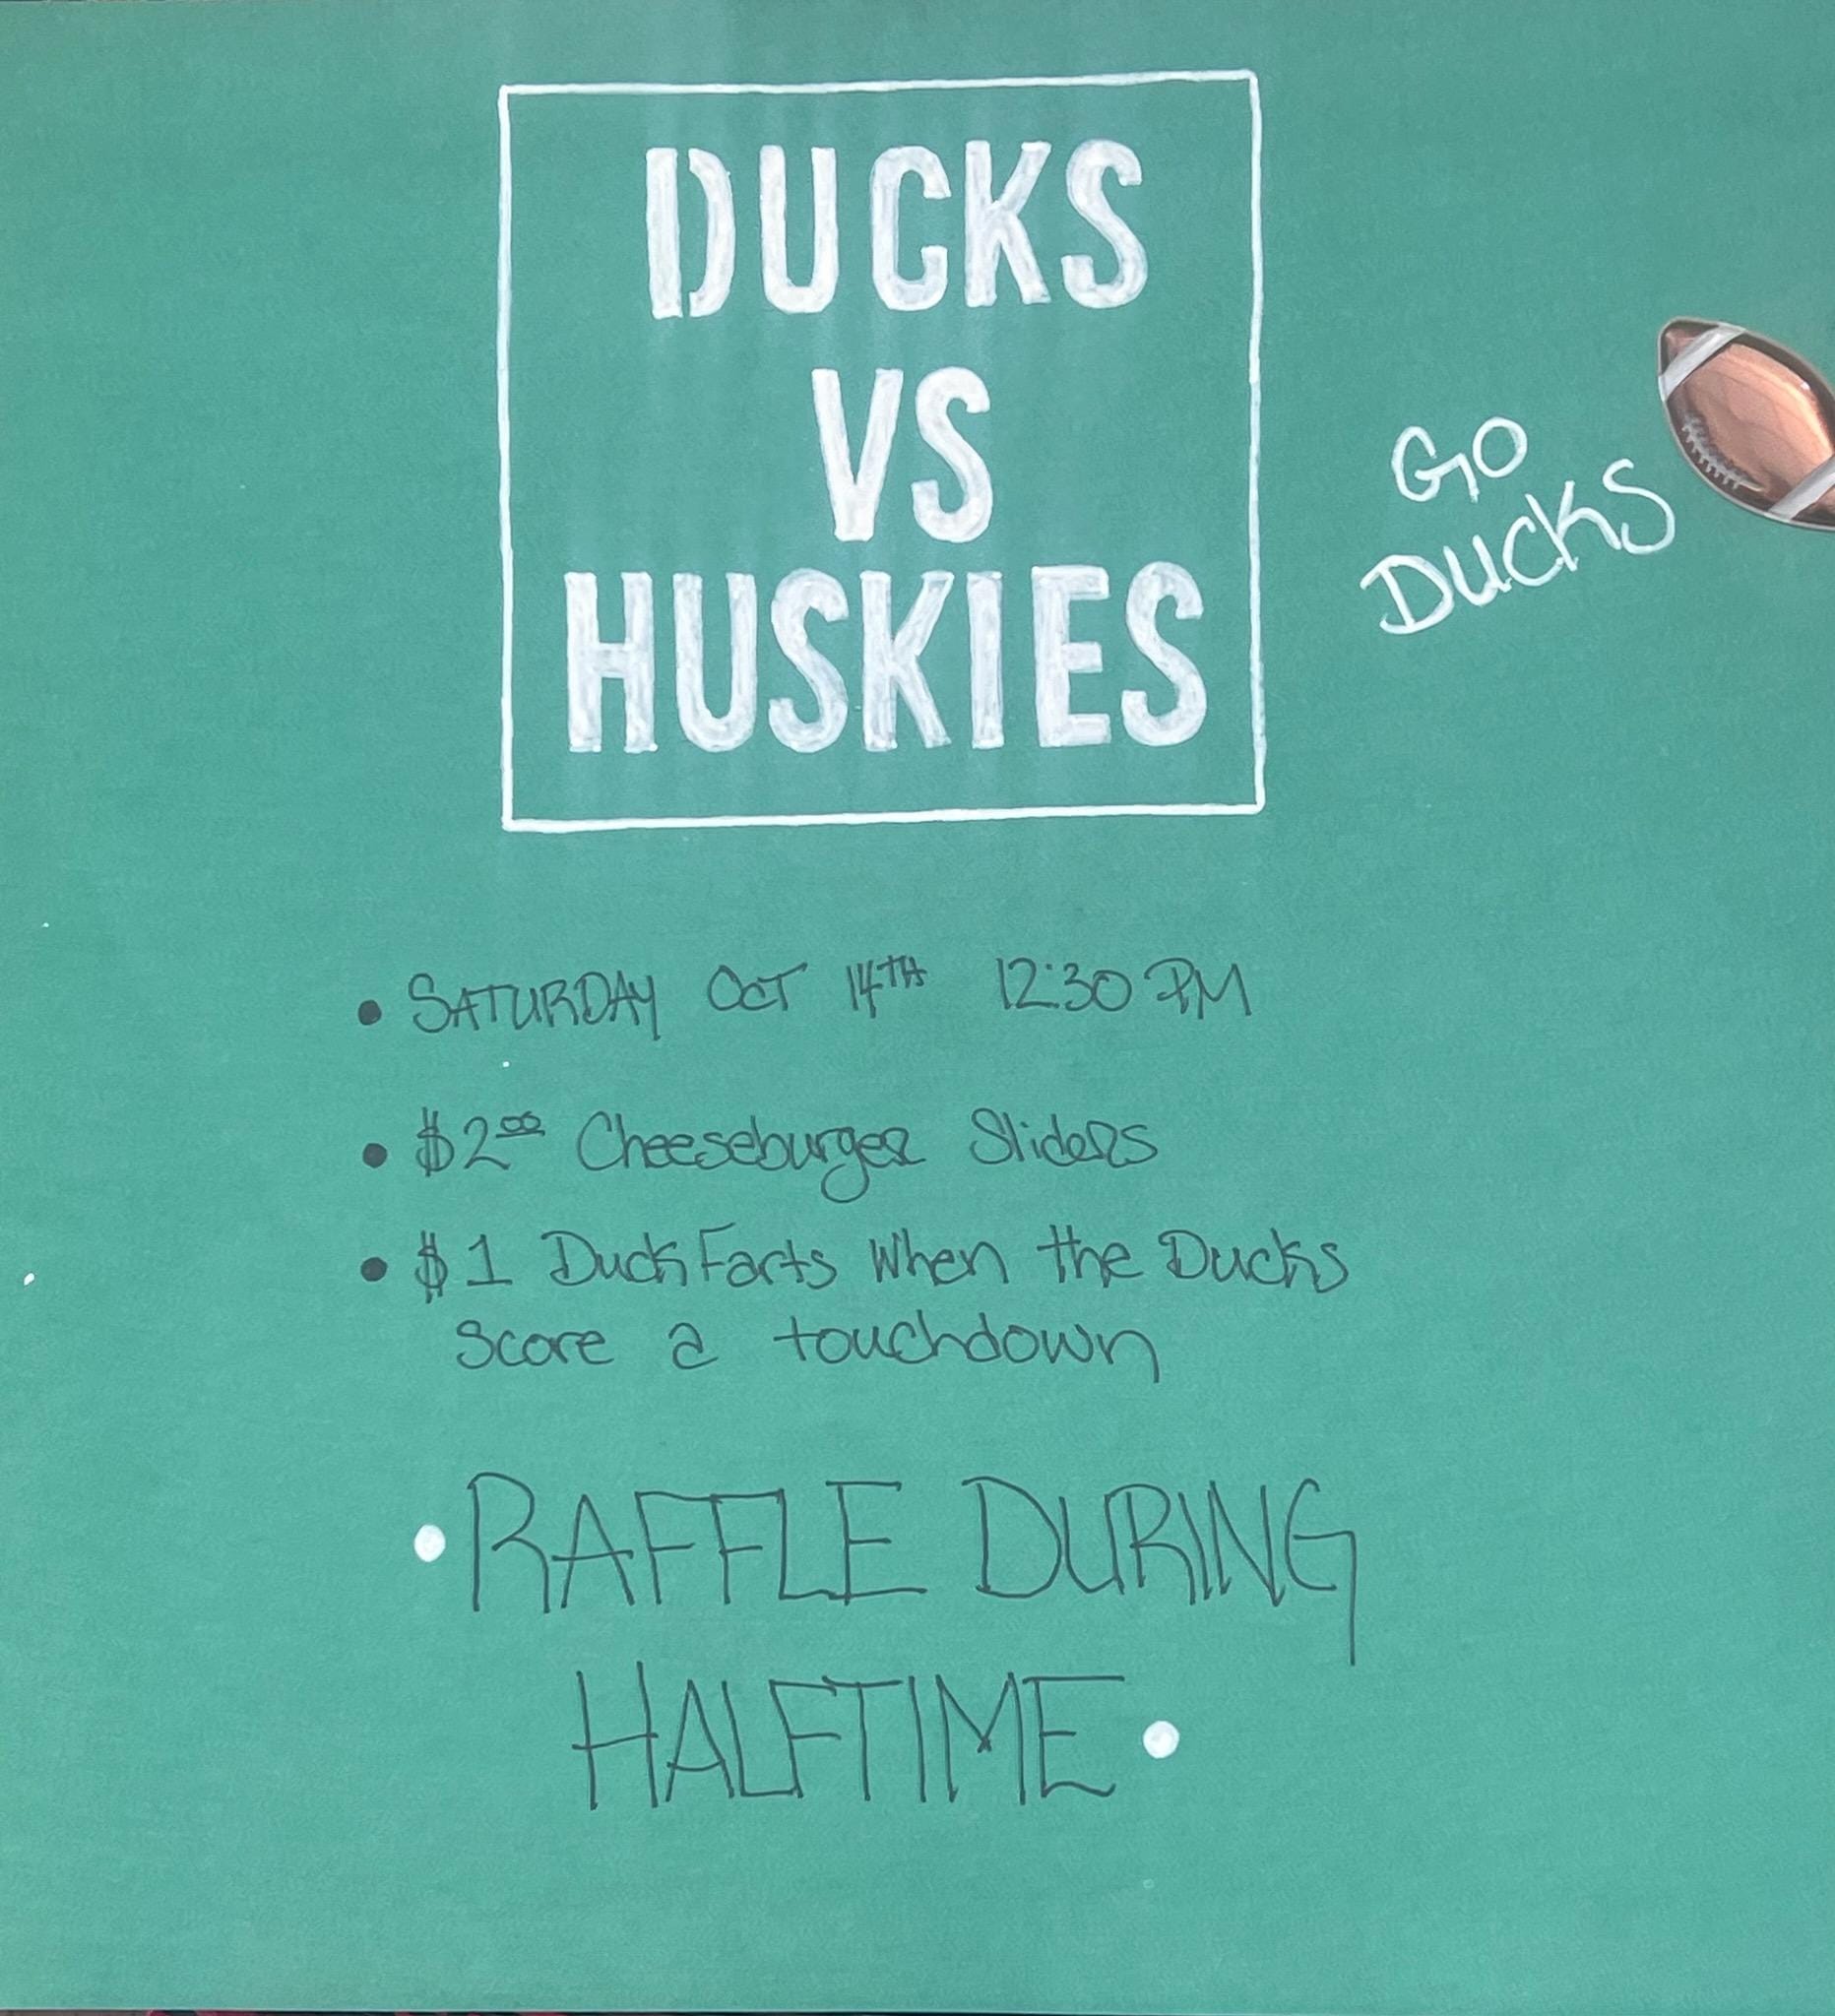 DUCKS
VS
HUSKIES
GO
DUCKS
• SATURDAY OCT 14TH 12:30 PM
• $2.00 Cheeseburger Sliders
• $1 Duck Farts When the Ducks
Score a touchdown
• RAFFLE DURING
HALFTIME •